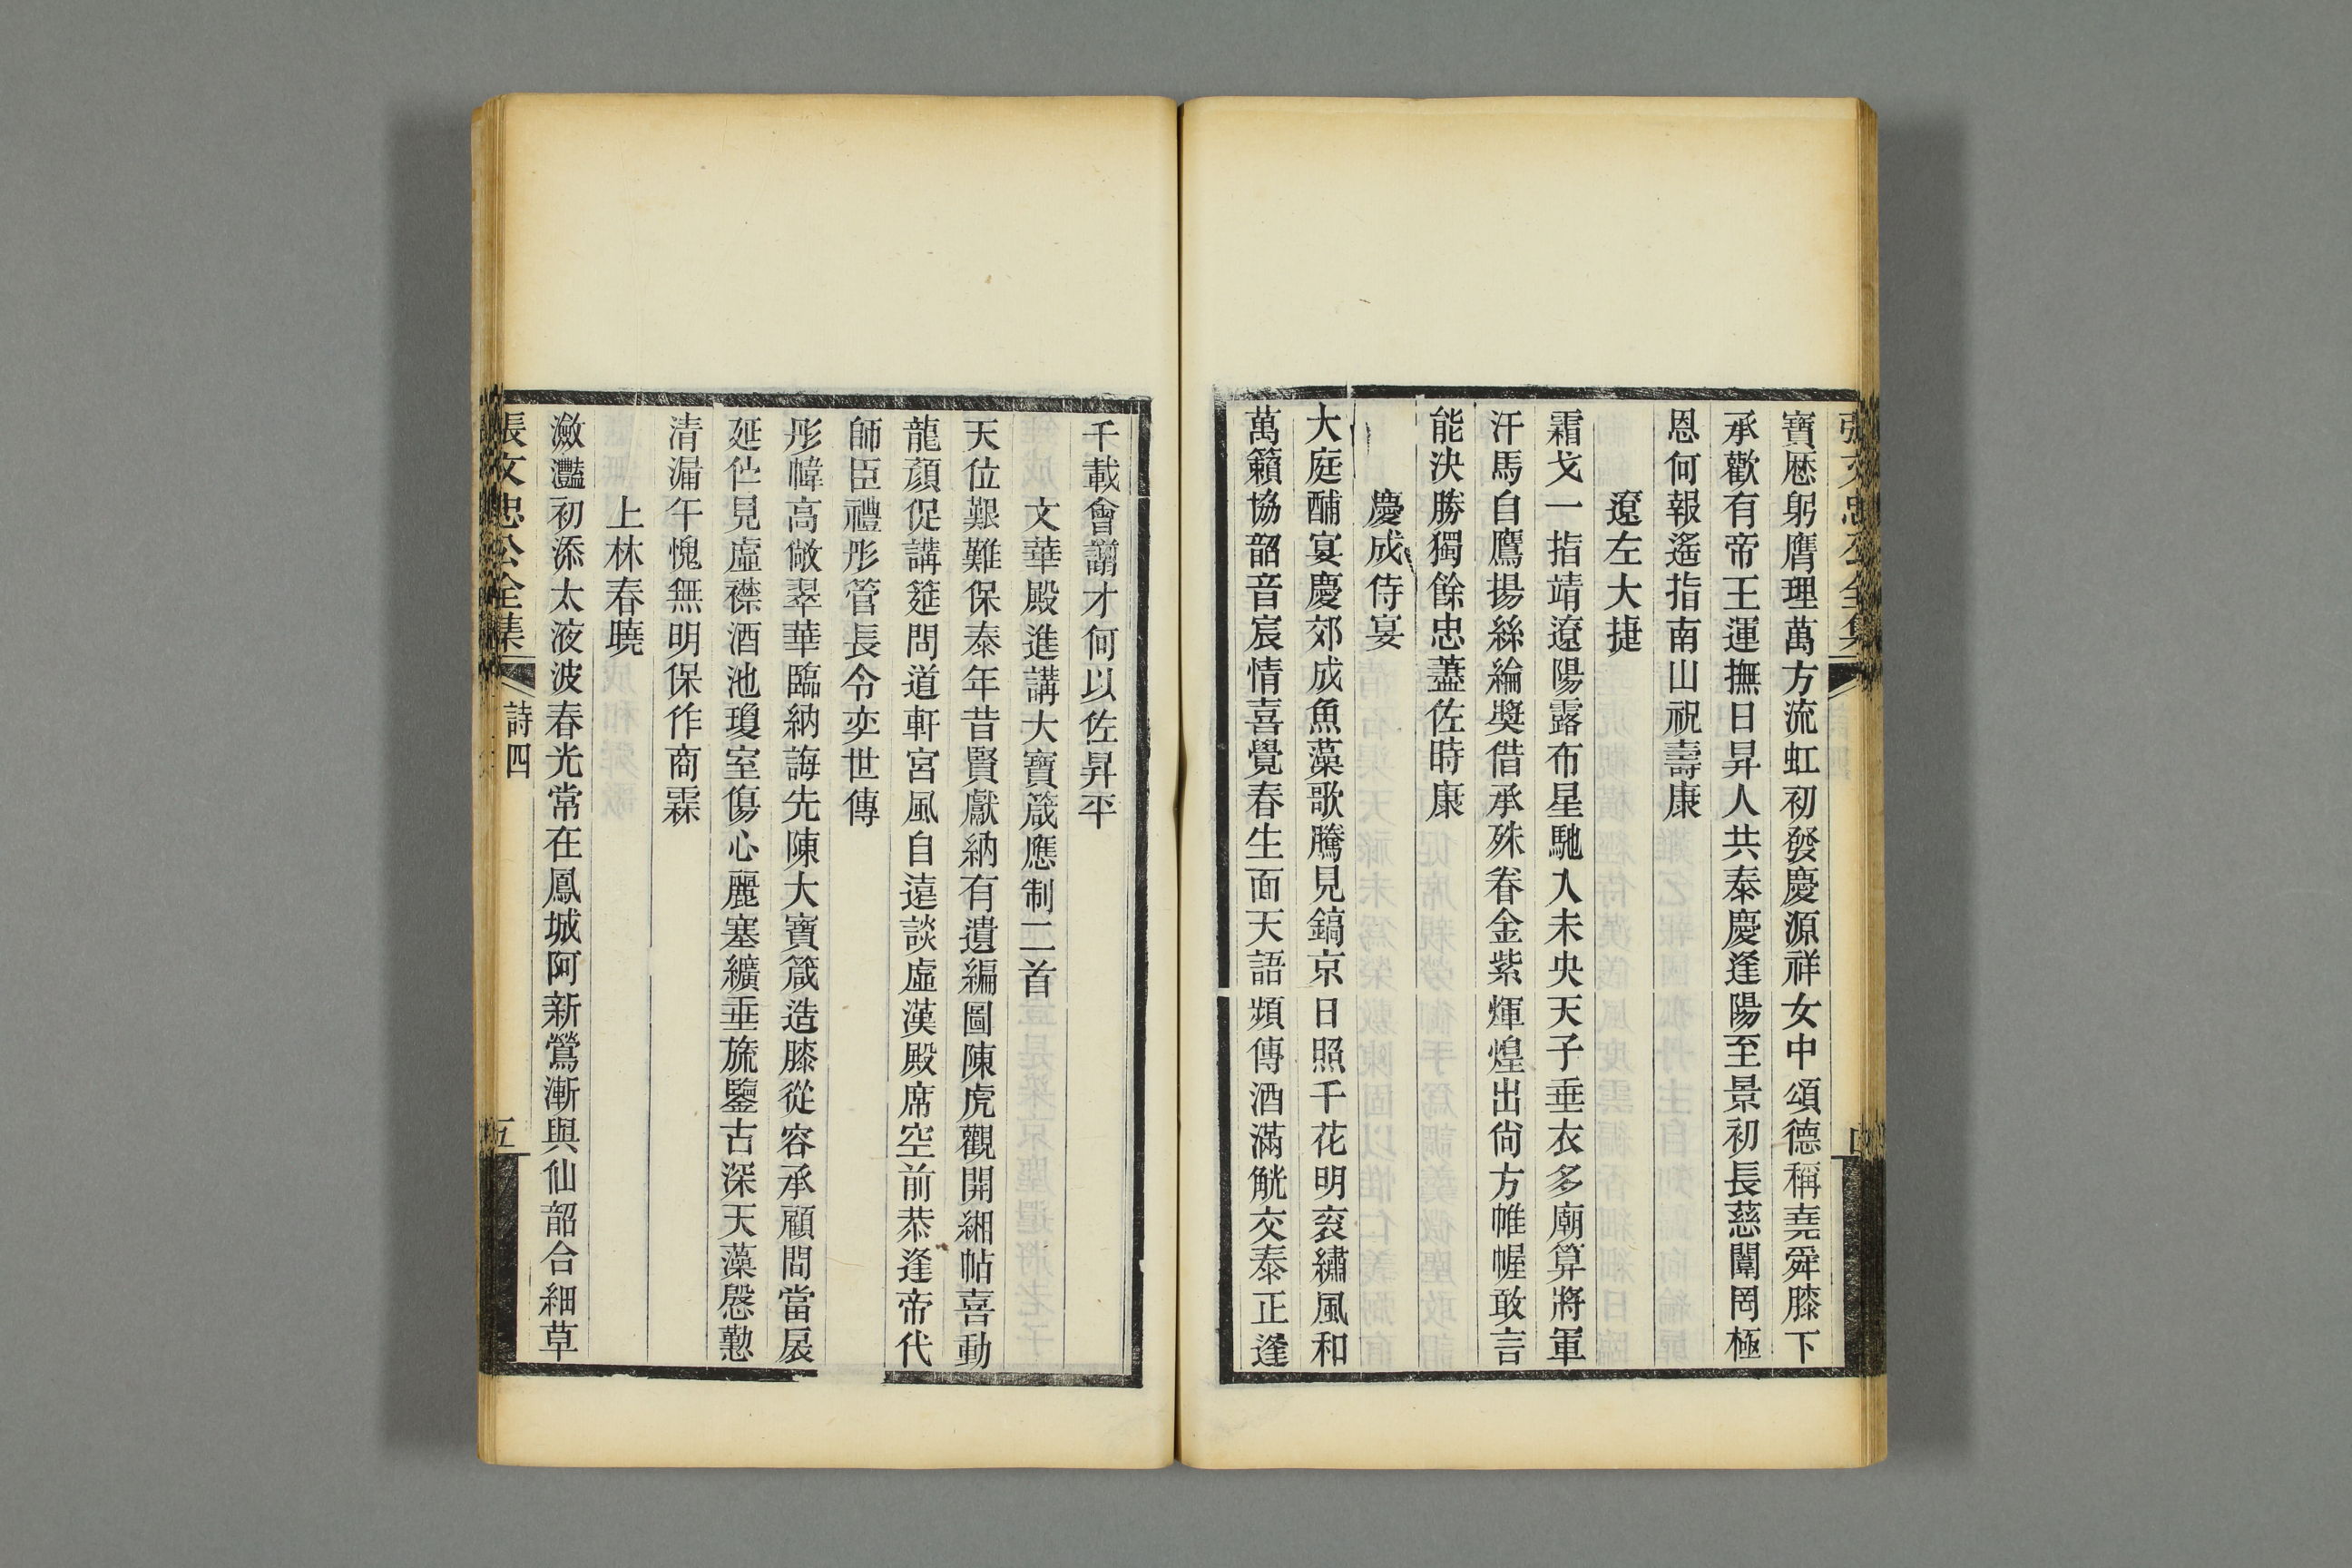 張文忠公全集
四
寶厯躬膺理萬方流虹初發慶源祥女中頌德稱堯舜膝下
承歡有帝王運撫日昇人共泰慶逢陽至景初長慈闈罔極
恩何報遙指南山祝壽康
遼左大捷
霜戈一指靖遼陽露布星馳入未央天子垂衣多廟算將軍
汗馬自鷹揚絲綸獎借承殊眷金紫煇煌出尙方帷幄敢言
能決勝獨餘忠藎佐時康
慶成侍宴
大庭酺宴慶郊成魚藻歌騰見鎬京日照千花明衮繡風和
萬籟協韶音宸情喜覺春生面天語頻傳酒滿觥交泰正逢
千載會謭才何以佐昇平
文華殿進講大寶箴應制二首
天位艱難保泰年昔賢獻納有遺編圖陳虎觀開緗帖喜動
龍顏促講筵問道軒宮風自遠談虛漢殿席空前恭逢帝代
師臣禮彤管長令奕世傳
彤幃高敞翠華臨納誨先陳大寶箴造膝從容承顧問當扆
延佇見虛襟酒池瓊室傷心麗塞纊垂旒鑒古深天藻慇懃
清漏午愧無明保作商霖
上林春曉
瀲灩初添太液波春光常在鳳城阿新鶯漸與仙韶合細草
張文忠公全集
詩四
五